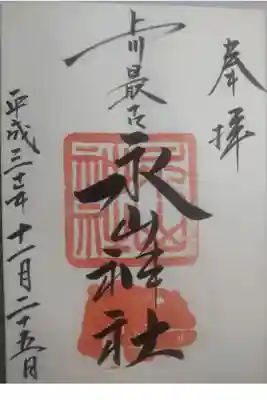 奉拝
上川最古永山神社
平成三十年十一月二十五日